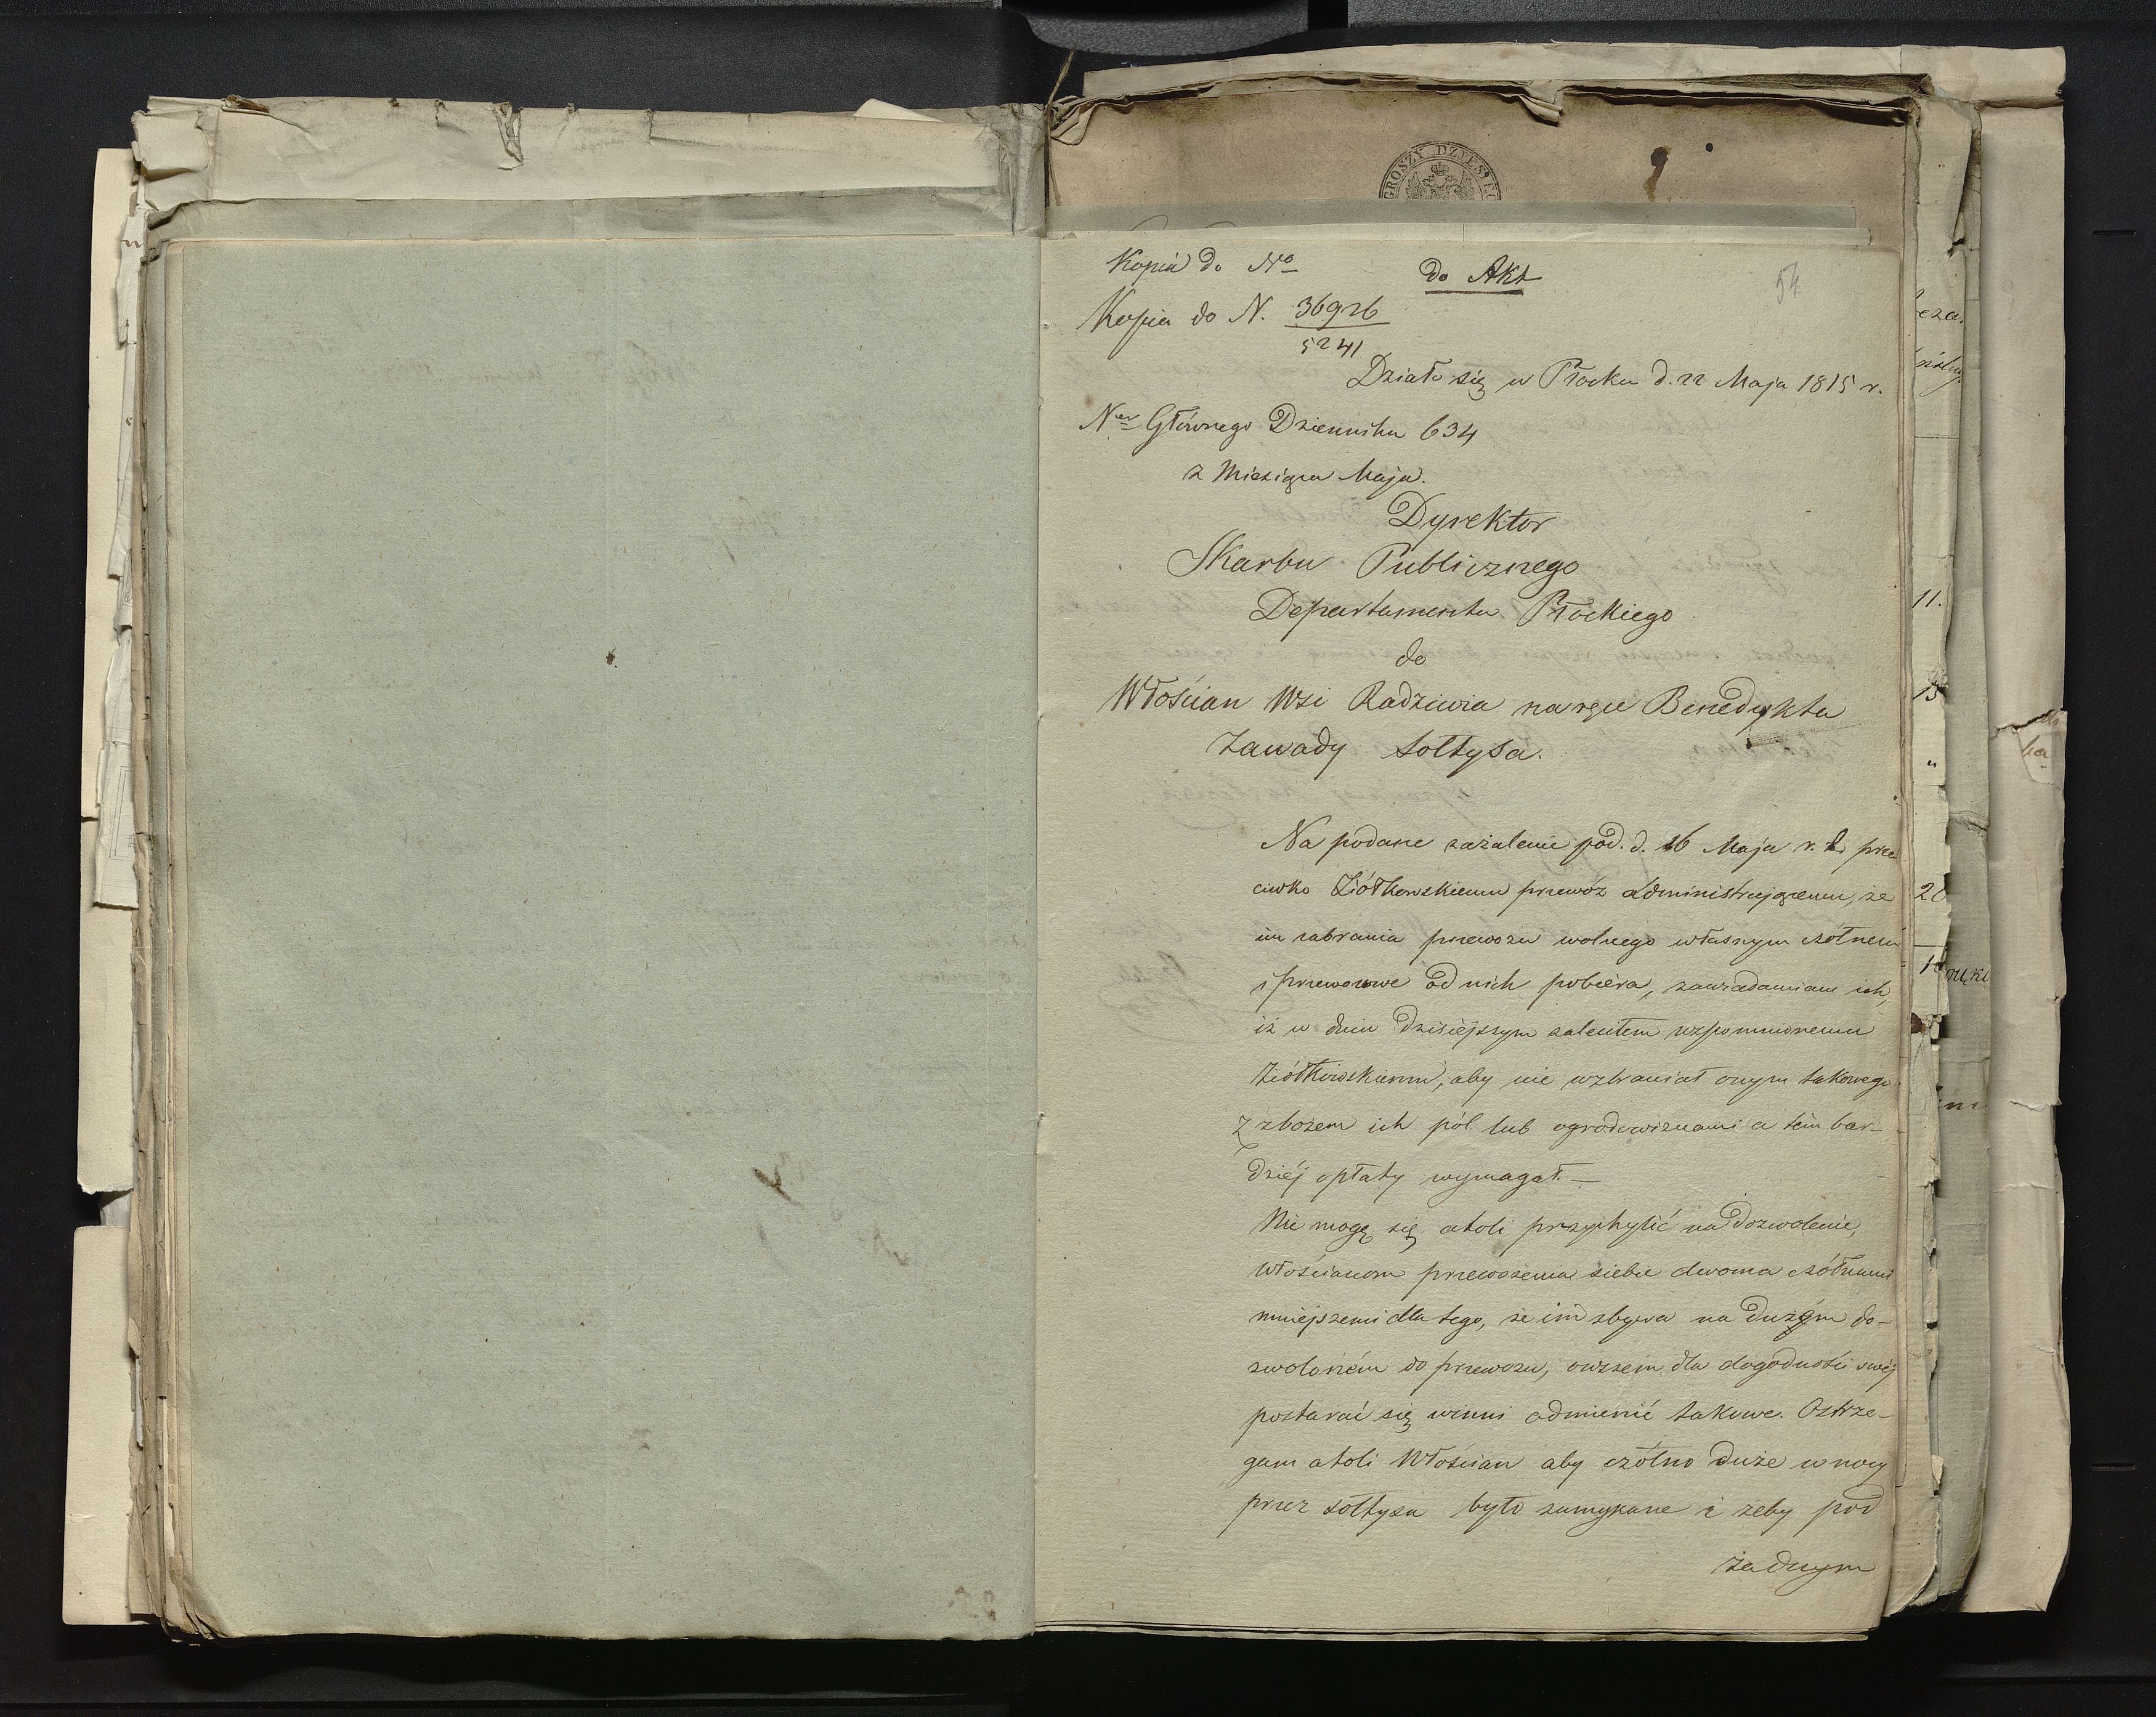 GROSZY DZIESIĘ
Kopia do No
do Akt
54
Kopia do N. 36926
5241
Działo się w Płocku d. 22 Maja 1815 r.
Ner Głównego Dziennika 634
z Miesiąca Maja.
Dyrektor
Skarbu Publicznego
Departamentu Płockiego
do
Włościan Wsi Radziwia na ręce Benedykta
Zawady Sołtysa.
Na podane zażalenie pod. d. 16 Maja r. b. prze
ciwko Ziółkowskiemu przewóz administrującemu, że
im zabrania przewozu wolnego własnym czółnem
i przewozowe od nich pobiéra, zawiadamiam ich,
iż w dniu dzisiéjszym zaleciłem wspomnionemu
Ziółkowskiemu, aby nie wzbraniał onym takowego
z zbożem ich pól lub ogrodowiznami a tém bar-
dziéj opłaty wymagał. —
Nie mogę się atoli przychylić na dozwolenie,
Włościanom przewożenia siebie dwoma czółnami
mniejszemi dla tego, że im zbywa na dużém do-
zwoloném do przewozu, owszem dla dogodności swéj
postarać się winni odmienić takowe. Ostrze-
gam atoli Włościan aby czółno duże w nocy
przez Sołtysa było zamykane i żeby pod
żadnym
11.